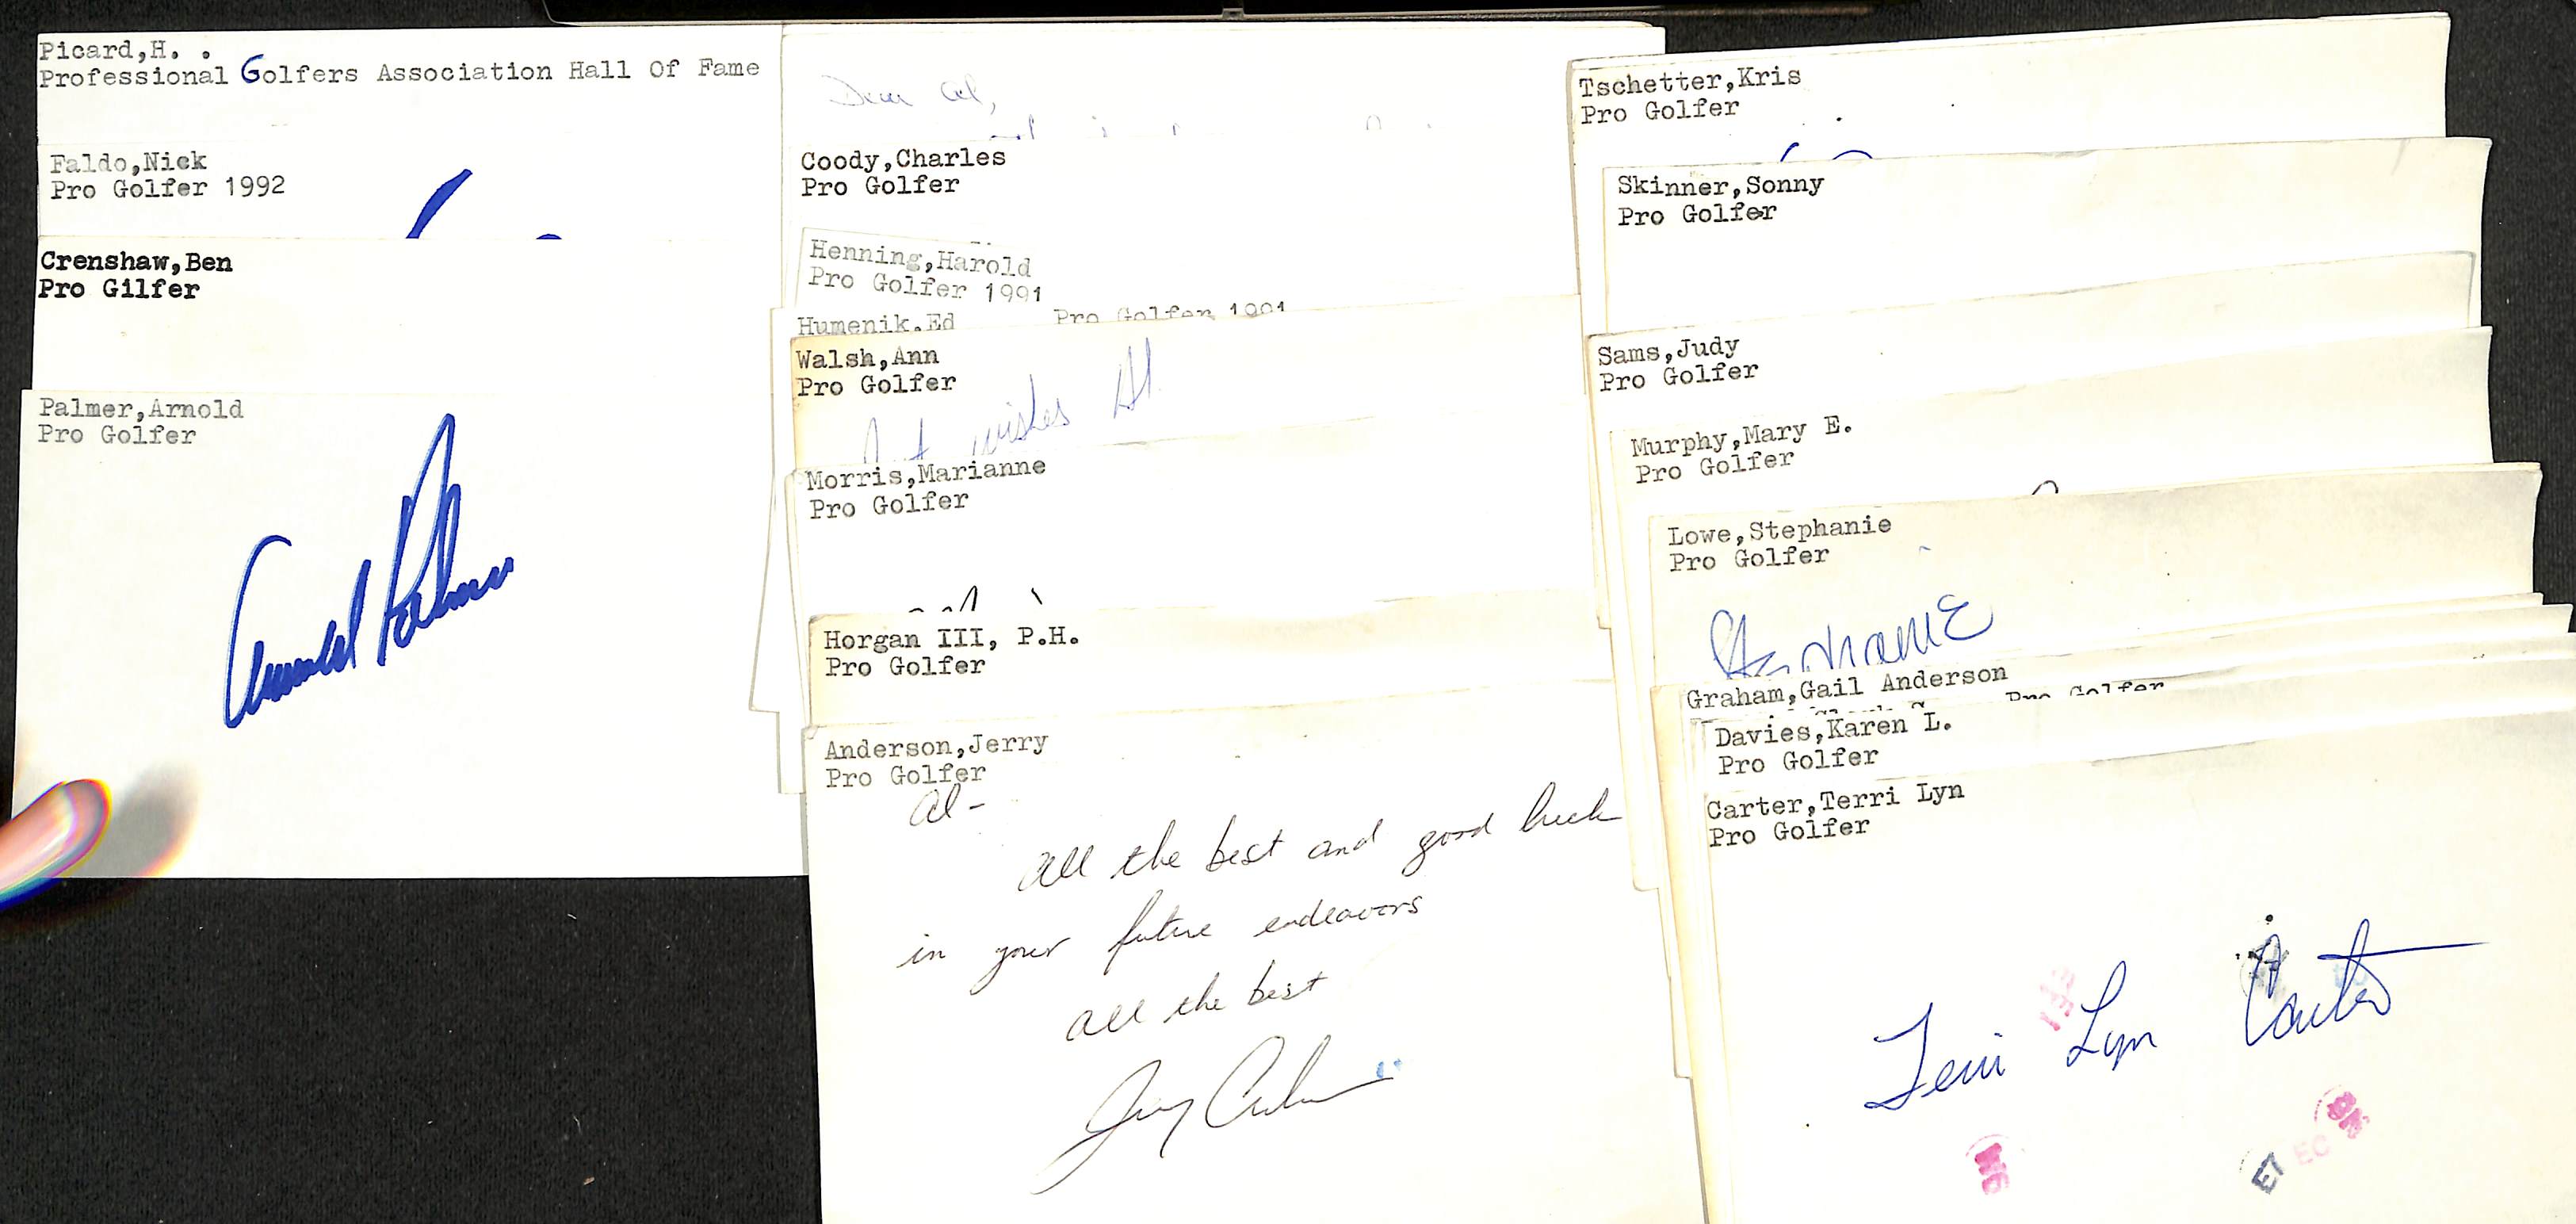 Picard,H. .
Professional Golfers Association Hall Of Fame
Faldo,Nick
Pro Golfer 1992
Crenshaw,Ben
Pro Gilfer
Palmer,Arnold
Pro Golfer
Arnold Palmer
Dear Al,
Coody,Charles
Pro Golfer
Henning,Harold
Pro Golfer 1991
Humenik.Ed
Pro Golfer 1991
Walsh,Ann
Pro Golfer
wishes Al
Morris,Marianne
Pro Golfer
Horgan III, P.H.
Pro Golfer
Anderson,Jerry
Pro Golfer
Al -
All the best and good luck
in your future endeavors
All the best
Jerry Anderson
Tschetter,Kris
Pro Golfer
Skinner,Sonny
Pro Golfer
Sams,Judy
Pro Golfer
Murphy,Mary E.
Pro Golfer
Lowe,Stephanie
Pro Golfer
Stephanie
Graham,Gail Anderson
Pro Golfer
Davies,Karen L.
Pro Golfer
Carter,Terri Lyn
Pro Golfer
Terri Lyn Carter